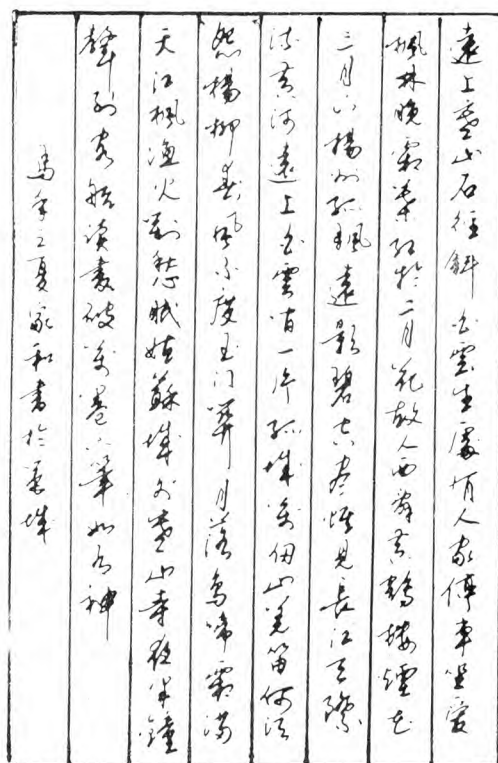 遠上寒山石徑斜白雲生處有人家停車坐愛
楓林晚霜葉紅於二月花故人西辭黃鶴樓煙花
三月下楊州孤帆遠影碧空盡惟見長江天際
流黃河遠上白雲間一片孤城萬仞山羌笛何須
怨楊柳春風不度玉門關月落烏啼霜滿
天江楓漁火對愁眠姑蘇城外寒山寺夜半鐘
聲到客船讀書破萬卷下筆如有神
馬年之夏家和書於蓉城